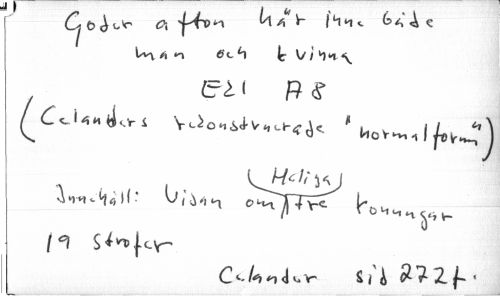 Goder afton här inne både
man och kvinna
E21 A8
(Celanders rekonstruerade "normalform")
Innehåll: Visan om (Heliga) tre konungar
19 strofer
Celander sid 272 f.